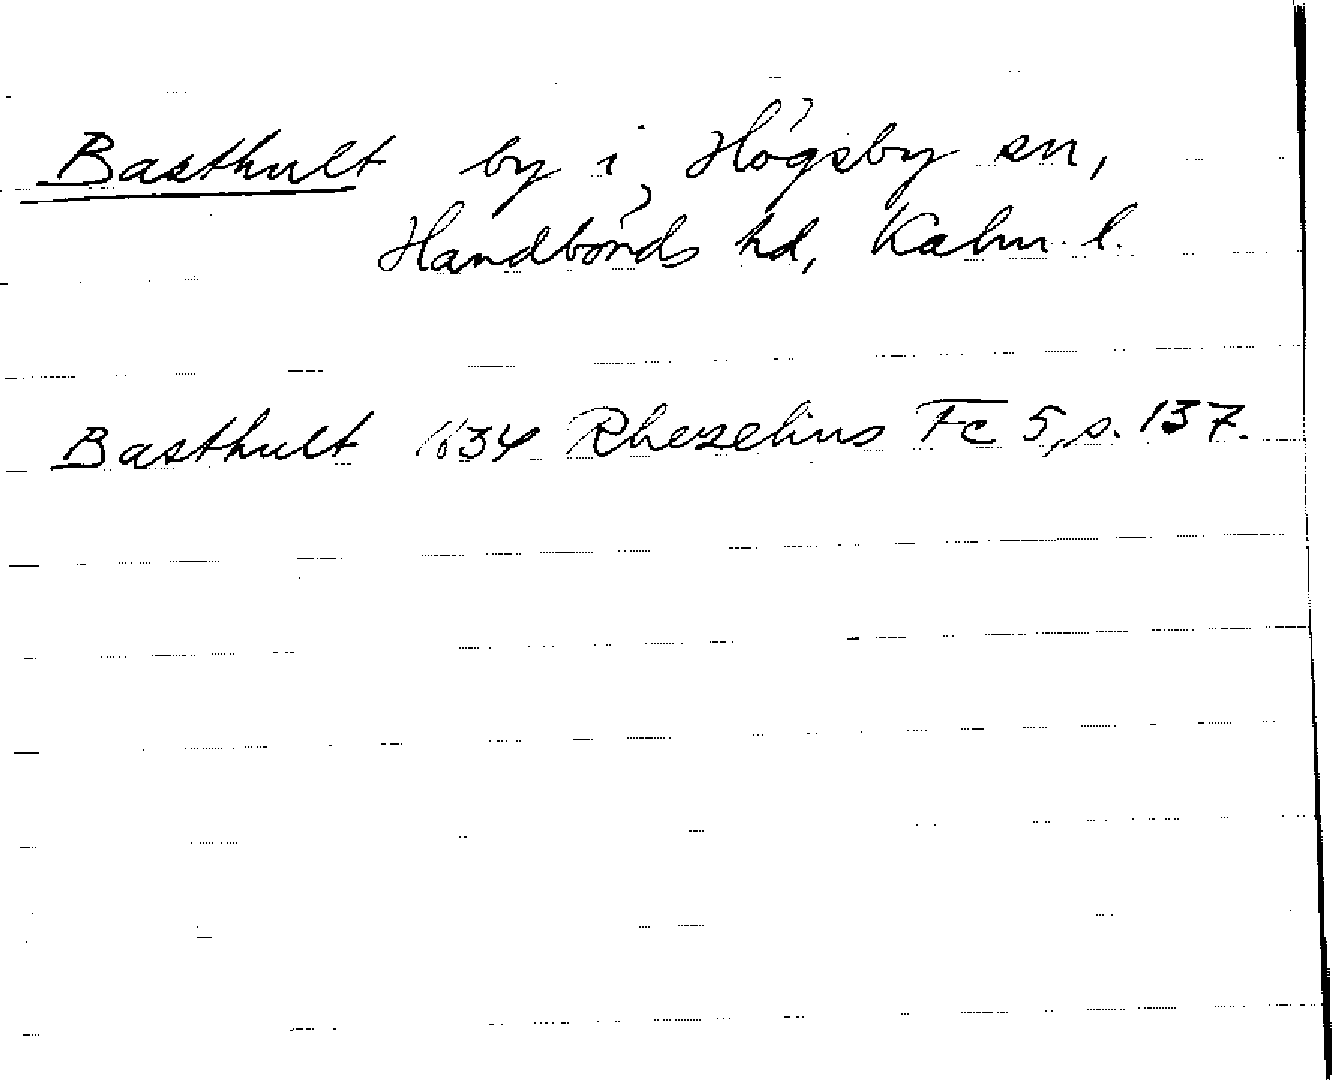 Basthult by i Högsby sn,
Handbörds hd, Kalm. l.
Basthult 1634 Rhezelius Fc 5, s. 137.